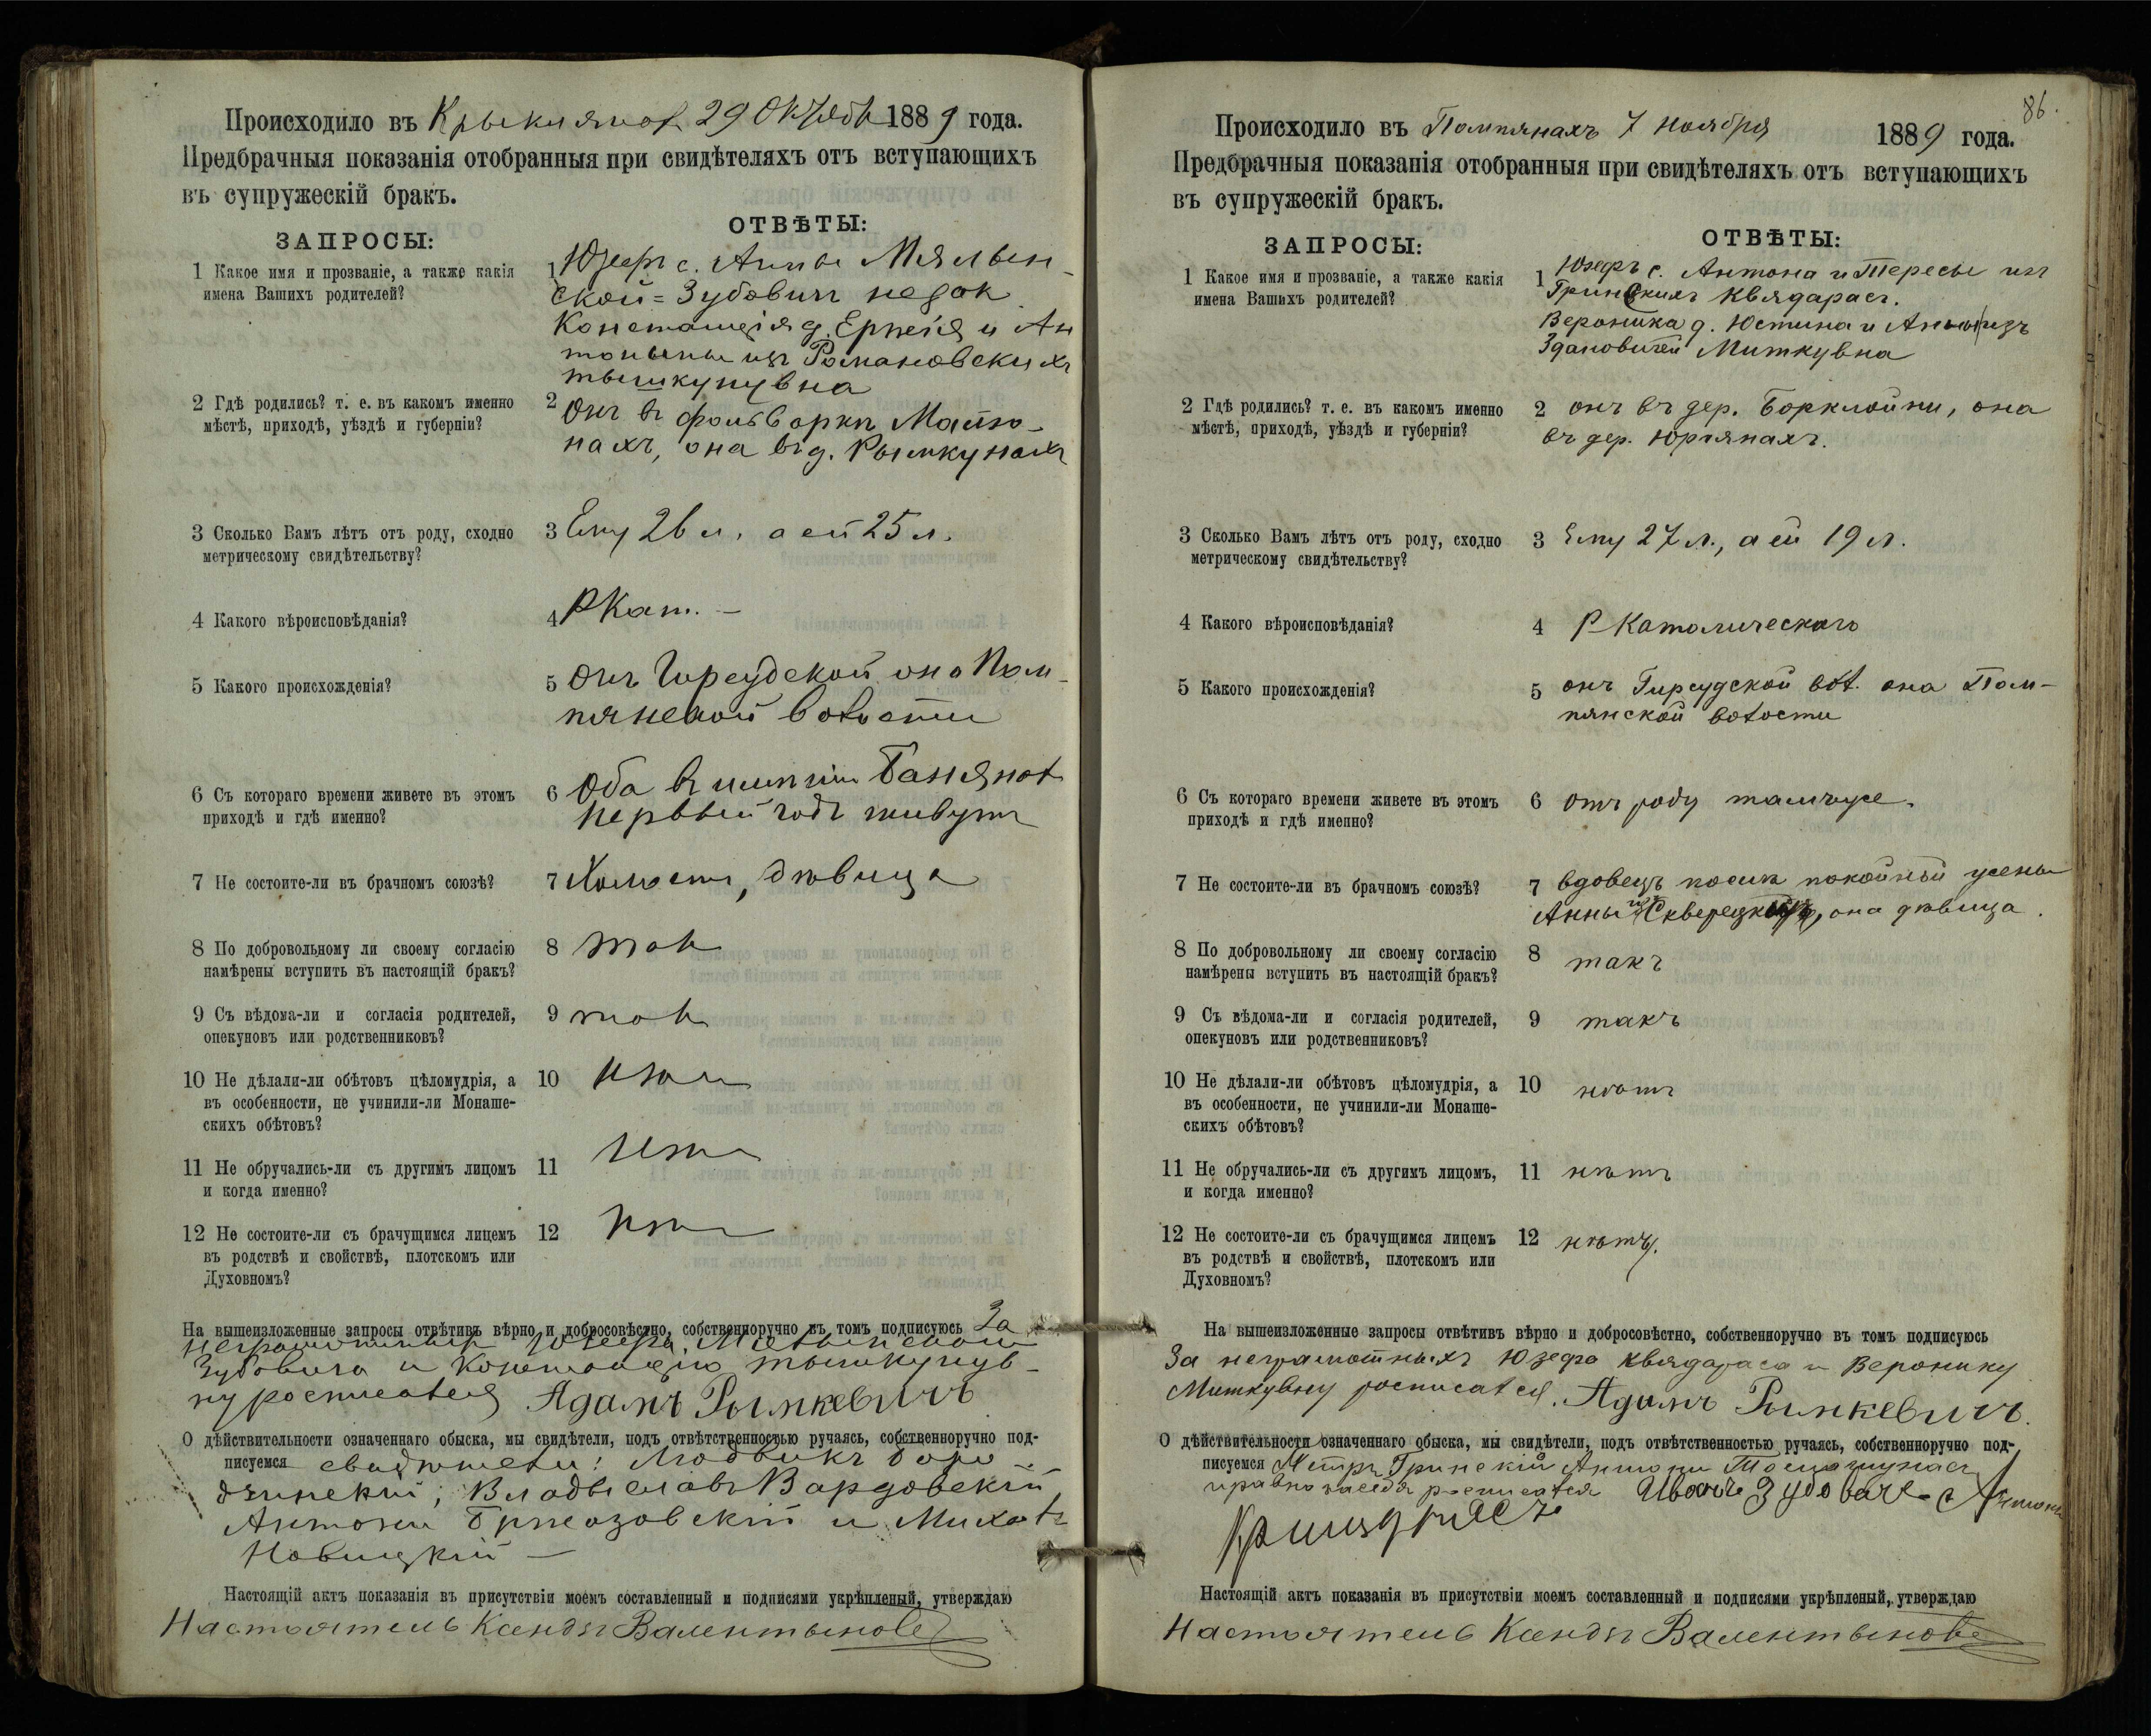 Происходило въ 29 1889 года.
Предбрачныя показанія отобранныя при свидѣтеляхъ отъ вступающихъ
въ супружескій бракъ.
ЗАПРОСЫ:
ОТВѢТЫ:
1 Какое имя и прозваніе, а также какія
имена Вашихъ родителей?
1 Юзефъ с. Анны
Зубовичъ
и Ан
изъ Романовскихъ
2 Гдѣ родились? т. е. въ какомъ именно
мѣстѣ, приходѣ, уѣздѣ и губерніи?
2 онъ въ
нахъ, она въ д.
3 Сколько Вамъ лѣтъ отъ роду, сходно
метрическому свидѣтельству?
3 Ему 26 л., а ей 25 л.
4 Какого вѣроисповѣданія?
4 РКат. –
5 Какого происхожденія?
5 онъ она Пом-
пянской волости
6 Съ котораго времени живете въ этомъ
приходѣ и гдѣ именно?
6 Оба въ
первый годъ живутъ
7 Не состоите-ли въ брачномъ союзѣ?
7 Холостъ, дѣвица
8 По добровольному ли своему согласію
намѣрены вступить въ настоящій бракъ?
8 такъ
9 Съ вѣдома-ли и согласія родителей,
опекуновъ или родственниковъ?
9 такъ
10 Не дѣлали-ли обѣтовъ цѣломудрія, а
въ особенности, не учинили-ли Монаше-
скихъ обѣтовъ?
10 нѣтъ
11 Не обручались-ли съ другимъ лицомъ
и когда именно?
11 нѣтъ
12 Не состоите-ли съ брачущимся лицемъ
въ родствѣ и свойствѣ, плотскомъ или
Духовномъ?
12 нѣтъ
На вышеизложенные запросы отвѣтивъ вѣрно и добросовѣстно, собственноручно въ томъ подписуюсь За
неграмотныхъ Юзефа
Зубовича и
росписался Адамъ Рымкевичъ
О дѣйствительности означеннаго обыска, мы свидѣтели, подъ отвѣтственностью ручаясь, собственноручно под-
писуемся свидѣтели: Людвикъ
Владыславъ Вардовскій
Антони и Михалъ
Новицкій —
Настоящій актъ показанія въ присутствіи моемъ составленный и подписями укрѣпленый, утверждаю
Настоятель Ксендзъ
86.
Происходило въ Помпянахъ 7 ноября 1889 года.
Предбрачныя показанія отобранныя при свидѣтеляхъ отъ вступающихъ
въ супружескій бракъ.
ЗАПРОСЫ:
ОТВѢТЫ:
1 Какое имя и прозваніе, а также какія
имена Вашихъ родителей?
1 Юзефъ с. Антона и Тересы изъ
Гринскихъ Квядарасъ.
Вероника д. Юстина и изъ
Здановичей Миткувна
2 Гдѣ родились? т. е. въ какомъ именно
мѣстѣ, приходѣ, уѣздѣ и губерніи?
2 онъ въ дер. Борклойни, она
въ дер. Юргянахъ.
3 Сколько Вамъ лѣтъ отъ роду, сходно
метрическому свидѣтельству?
3 Ему 27 л., а ей 19 л.
4 Какого вѣроисповѣданія?
4 Р-Католическаго
5 Какого происхожденія?
5 онъ Гирсудской вол. она Пом-
пянской волости
6 Съ котораго времени живете въ этомъ
приходѣ и гдѣ именно?
6 отъ роду тамъ же.
7 Не состоите-ли въ брачномъ союзѣ?
7 вдовецъ послѣ покойной жены
Анны изъ она дѣвица.
8 По добровольному ли своему согласію
намѣрены вступить въ настоящій бракъ?
8 такъ
9 Съ вѣдома-ли и согласія родителей,
опекуновъ или родственниковъ?
9 такъ
10 Не дѣлали-ли обѣтовъ цѣломудрія, а
въ особенности, не учинили-ли Монаше-
скихъ обѣтовъ?
10 нѣтъ
11 Не обручались-ли съ другимъ лицомъ,
и когда именно?
11 нѣтъ
12 Не состоите-ли съ брачущимся лицемъ
въ родствѣ и свойствѣ, плотскомъ или
Духовномъ?
12 нѣтъ.
На вышеизложенные запросы отвѣтивъ вѣрно и добросовѣстно, собственноручно въ томъ подписуюсь
За неграмотныхъ Юзефа Квядараса и Веронику
Миткувну росписался. Адамъ Рымкевичъ.
О дѣйствительности означеннаго обыска, мы свидѣтели, подъ отвѣтственностью ручаясь, собственноручно под-
писуемся Петръ Гринскій Антони
росписался Иванъ
Настоящій актъ показанія въ присутствіи моемъ составленный и подписями укрѣпленый, утверждаю
Настоятель Ксендзъ